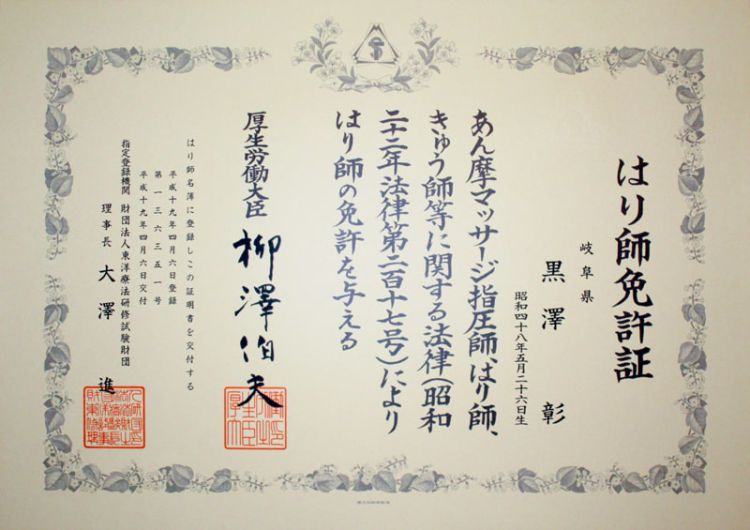 はり師免許証
岐阜県
黒澤 彰
昭和四十八年五月二十六日生
あん摩マッサージ指圧師、はり師、
きゅう師等に関する法律(昭和
二十二年法律第二百十七号)により
はり師の免許を与える
厚生労働大臣 柳澤伯夫
はり師名簿に登録しこの証明書を交付する
平成十九年四月六日登録
第一三六三五一号
平成十九年四月六日交付
指定登録機関 財団法人東洋療法研修試験財団
理事長 大澤 進